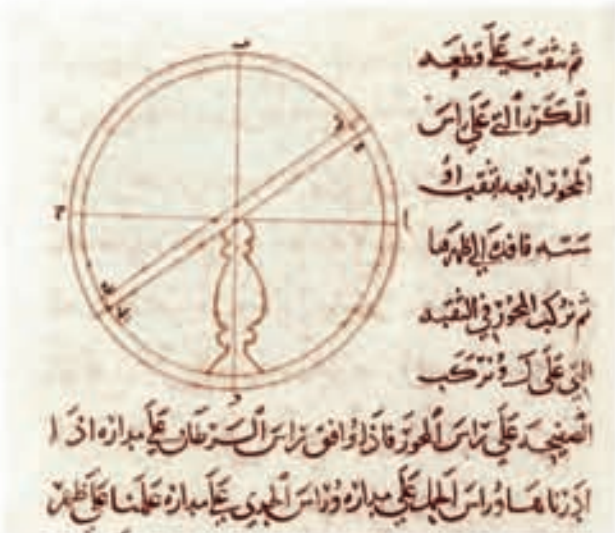 ثم نثقب على قطعه
الكره التي على راس
المحور اربعه ثقب او
سته نافذه الى ظهرها
ثم نركب المحور في الثقبه
التي على ونركب
الصفيحه على راس المحور فاذا وافق راس السرطان على مداره اذا
ادرناها وراس الحمل على مداره وراس الجدي على مداره علمنا على ظهر